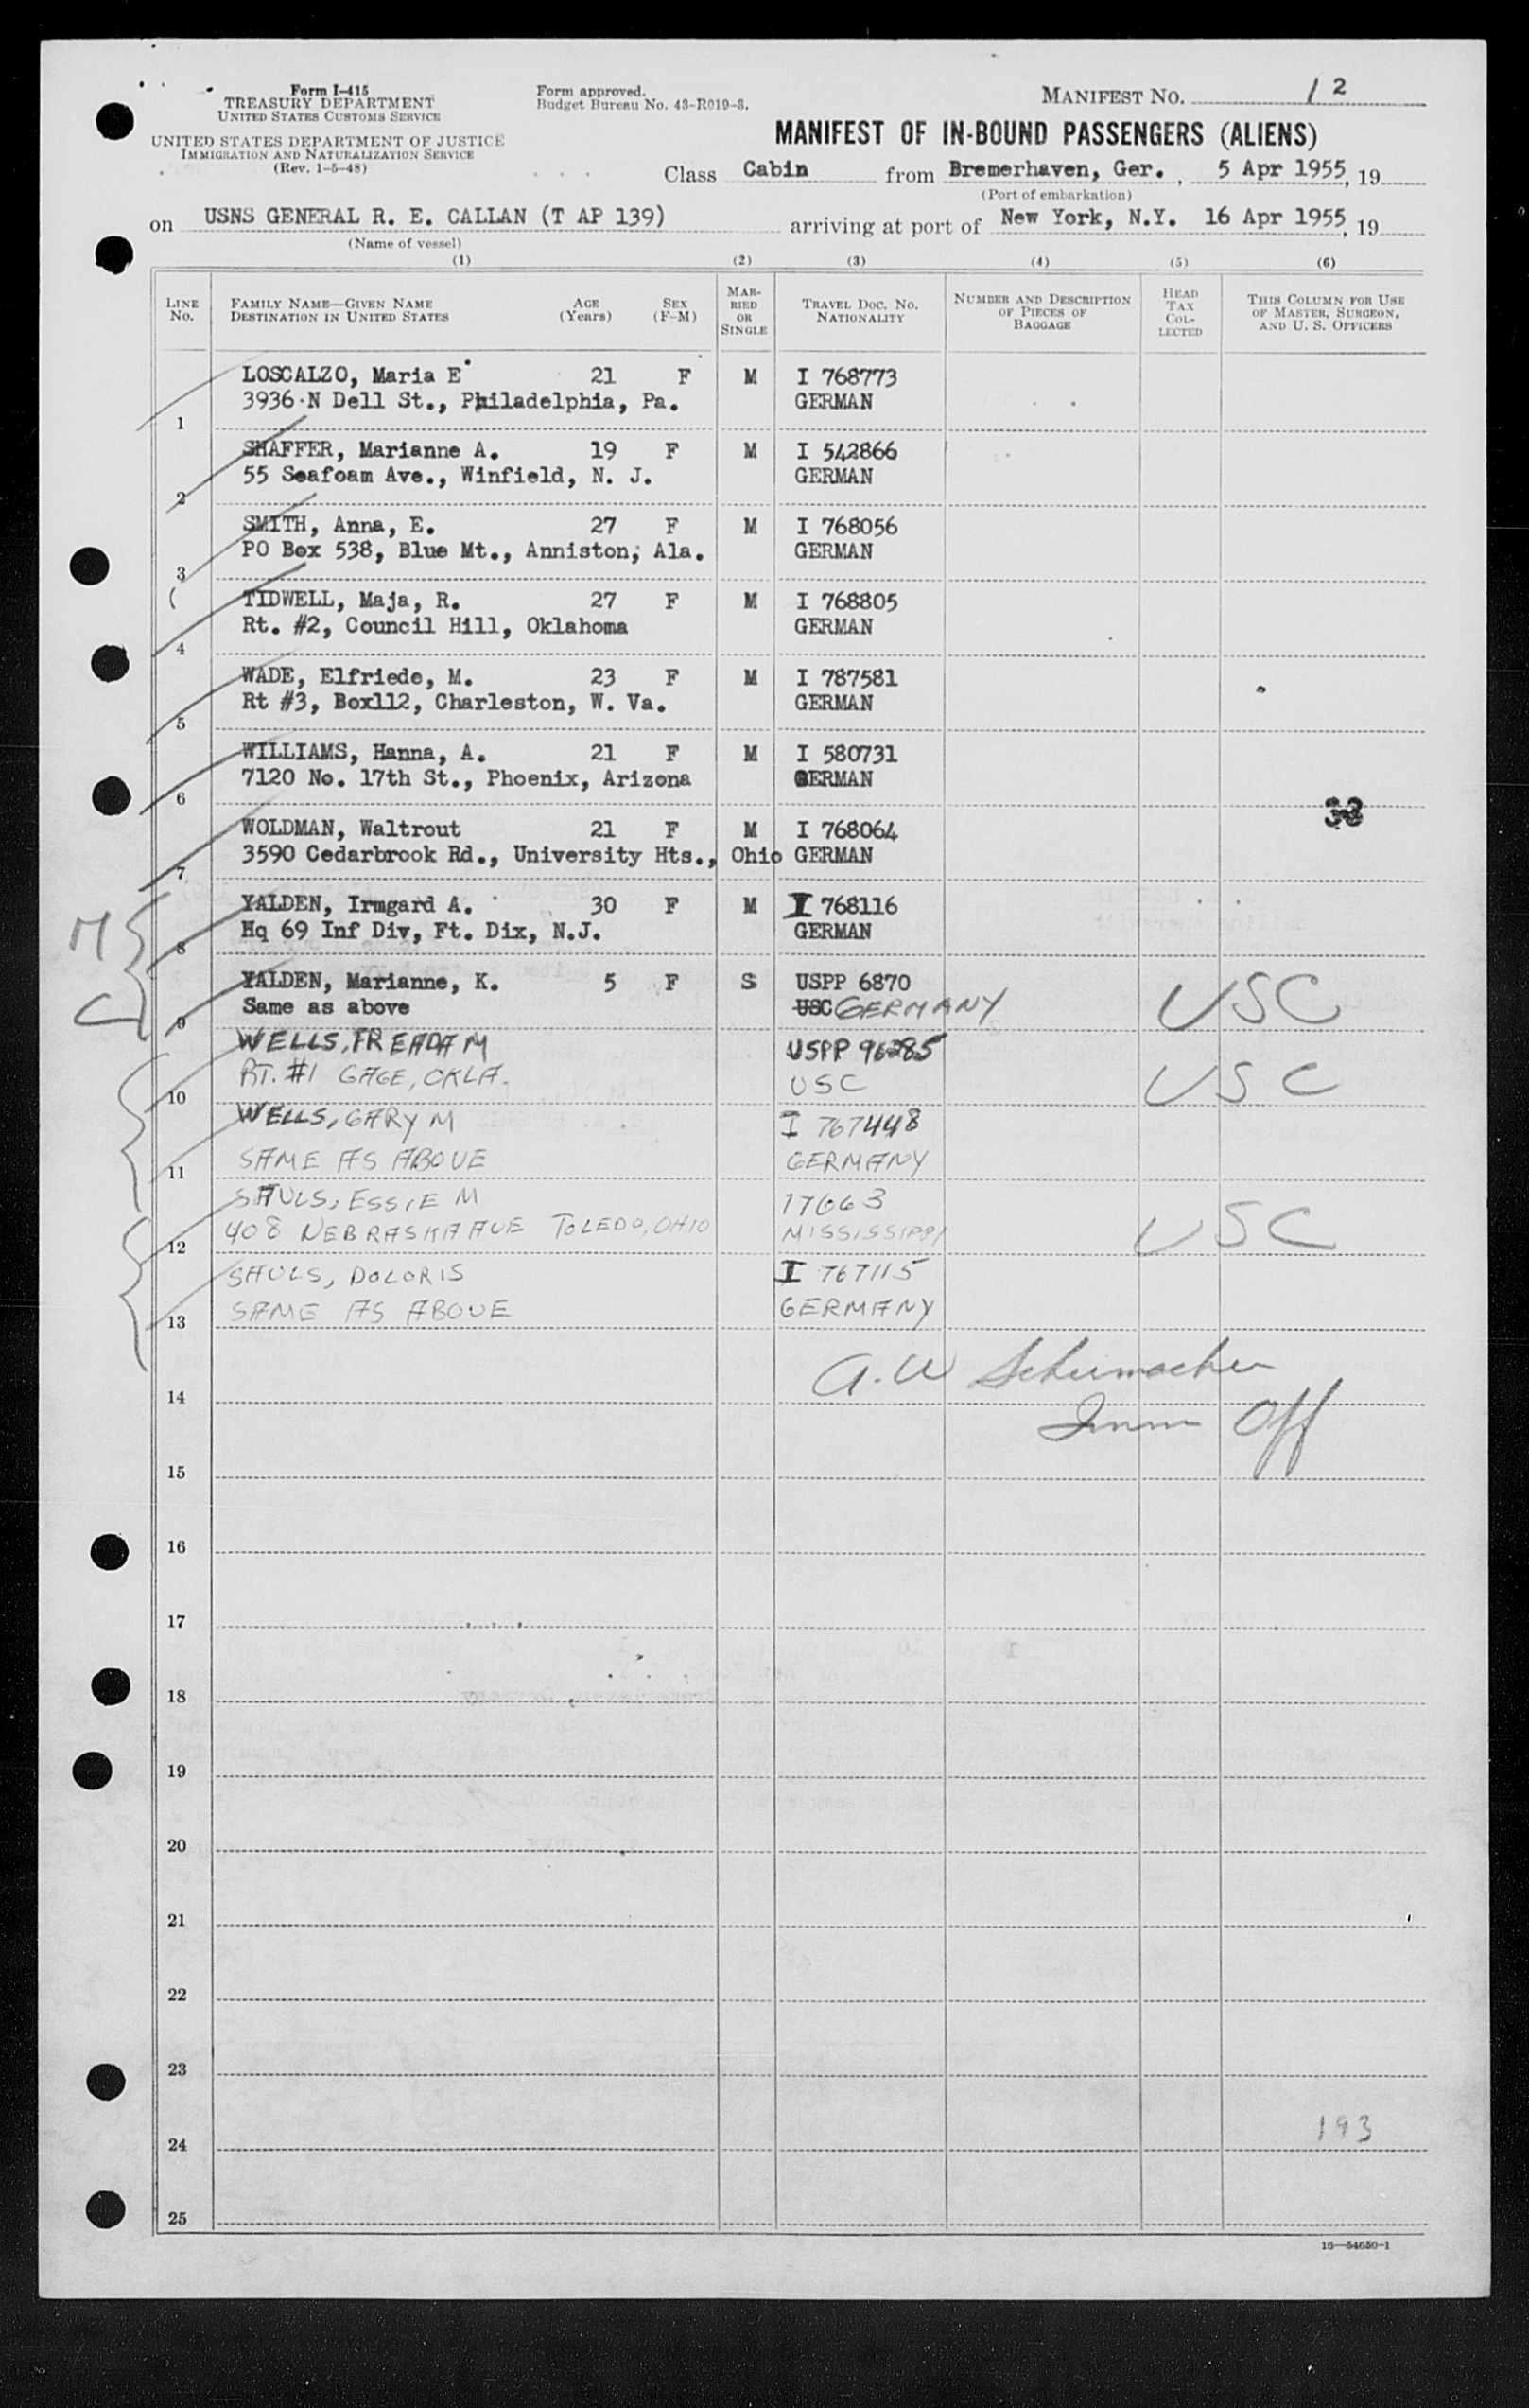 Form I-415
TREASURY DEPARTMENT
UNITED STATES CUSTOMS SERVICE
UNITED STATES DEPARTMENT OF JUSTICE
IMMIGRATION AND NATURALIZATION SERVICE
(Rev. 1-5-48)
Form approved.
Budget Bureau No. 43-R019-3.
MANIFEST NO. 12
MANIFEST OF IN-BOUND PASSENGERS (ALIENS)
Class Cabin from Bremerhaven, Ger., 5 Apr 1955, 19
(Port of embarkation)
on USNS GENERAL R. E. CALLAN (T AP 139) arriving at port of New York, N.Y. 16 Apr 1955, 19
(Name of vessel)
(1) (2) (3) (4) (5) (6)
LINE No. FAMILY NAME—GIVEN NAME DESTINATION IN UNITED STATES AGE (Years) SEX (F-M) MARRIED OR SINGLE TRAVEL DOC. NO. NATIONALITY NUMBER AND DESCRIPTION OF PIECES OF BAGGAGE HEAD TAX COLLECTED THIS COLUMN FOR USE OF MASTER, SURGEON, AND U. S. OFFICERS
LOSCALZO, Maria E 21 F M I 768773
1 3936 N Dell St., Philadelphia, Pa. GERMAN
SHAFFER, Marianne A. 19 F M I 542866
2 55 Seafoam Ave., Winfield, N. J. GERMAN
SMITH, Anna, E. 27 F M I 768056
3 PO Box 538, Blue Mt., Anniston, Ala. GERMAN
TIDWELL, Maja, R. 27 F M I 768805
4 Rt. #2, Council Hill, Oklahoma GERMAN
WADE, Elfriede, M. 23 F M I 787581
5 Rt #3, Box112, Charleston, W. Va. GERMAN
WILLIAMS, Hanna, A. 21 F M I 580731
6 7120 No. 17th St., Phoenix, Arizona GERMAN
33
WOLDMAN, Waltrout 21 F M I 768064
7 3590 Cedarbrook Rd., University Hts., Ohio GERMAN
M C
YALDEN, Irmgard A. 30 F M I 768116
8 Hq 69 Inf Div, Ft. Dix, N.J. GERMAN
YALDEN, Marianne, K. 5 F S USPP 6870
9 Same as above USC GERMANY USC
WELLS, FREADA M USPP 96285
10 RT. #1 GAGE, OKLA. USC USC
WELLS, GARY M I 767448
11 SAME AS ABOVE GERMANY
SAULS, ESSIE M 17663
12 408 NEBRASKA AUE TOLEDO, OHIO MISSISSIPPI USC
SAULS, DOLORIS I 767115
13 SAME AS ABOVE GERMANY
A. W Schumacher
14
Imm Off
15
16
17
18
19
20
21
22
23
193
24
25
16—54650-1